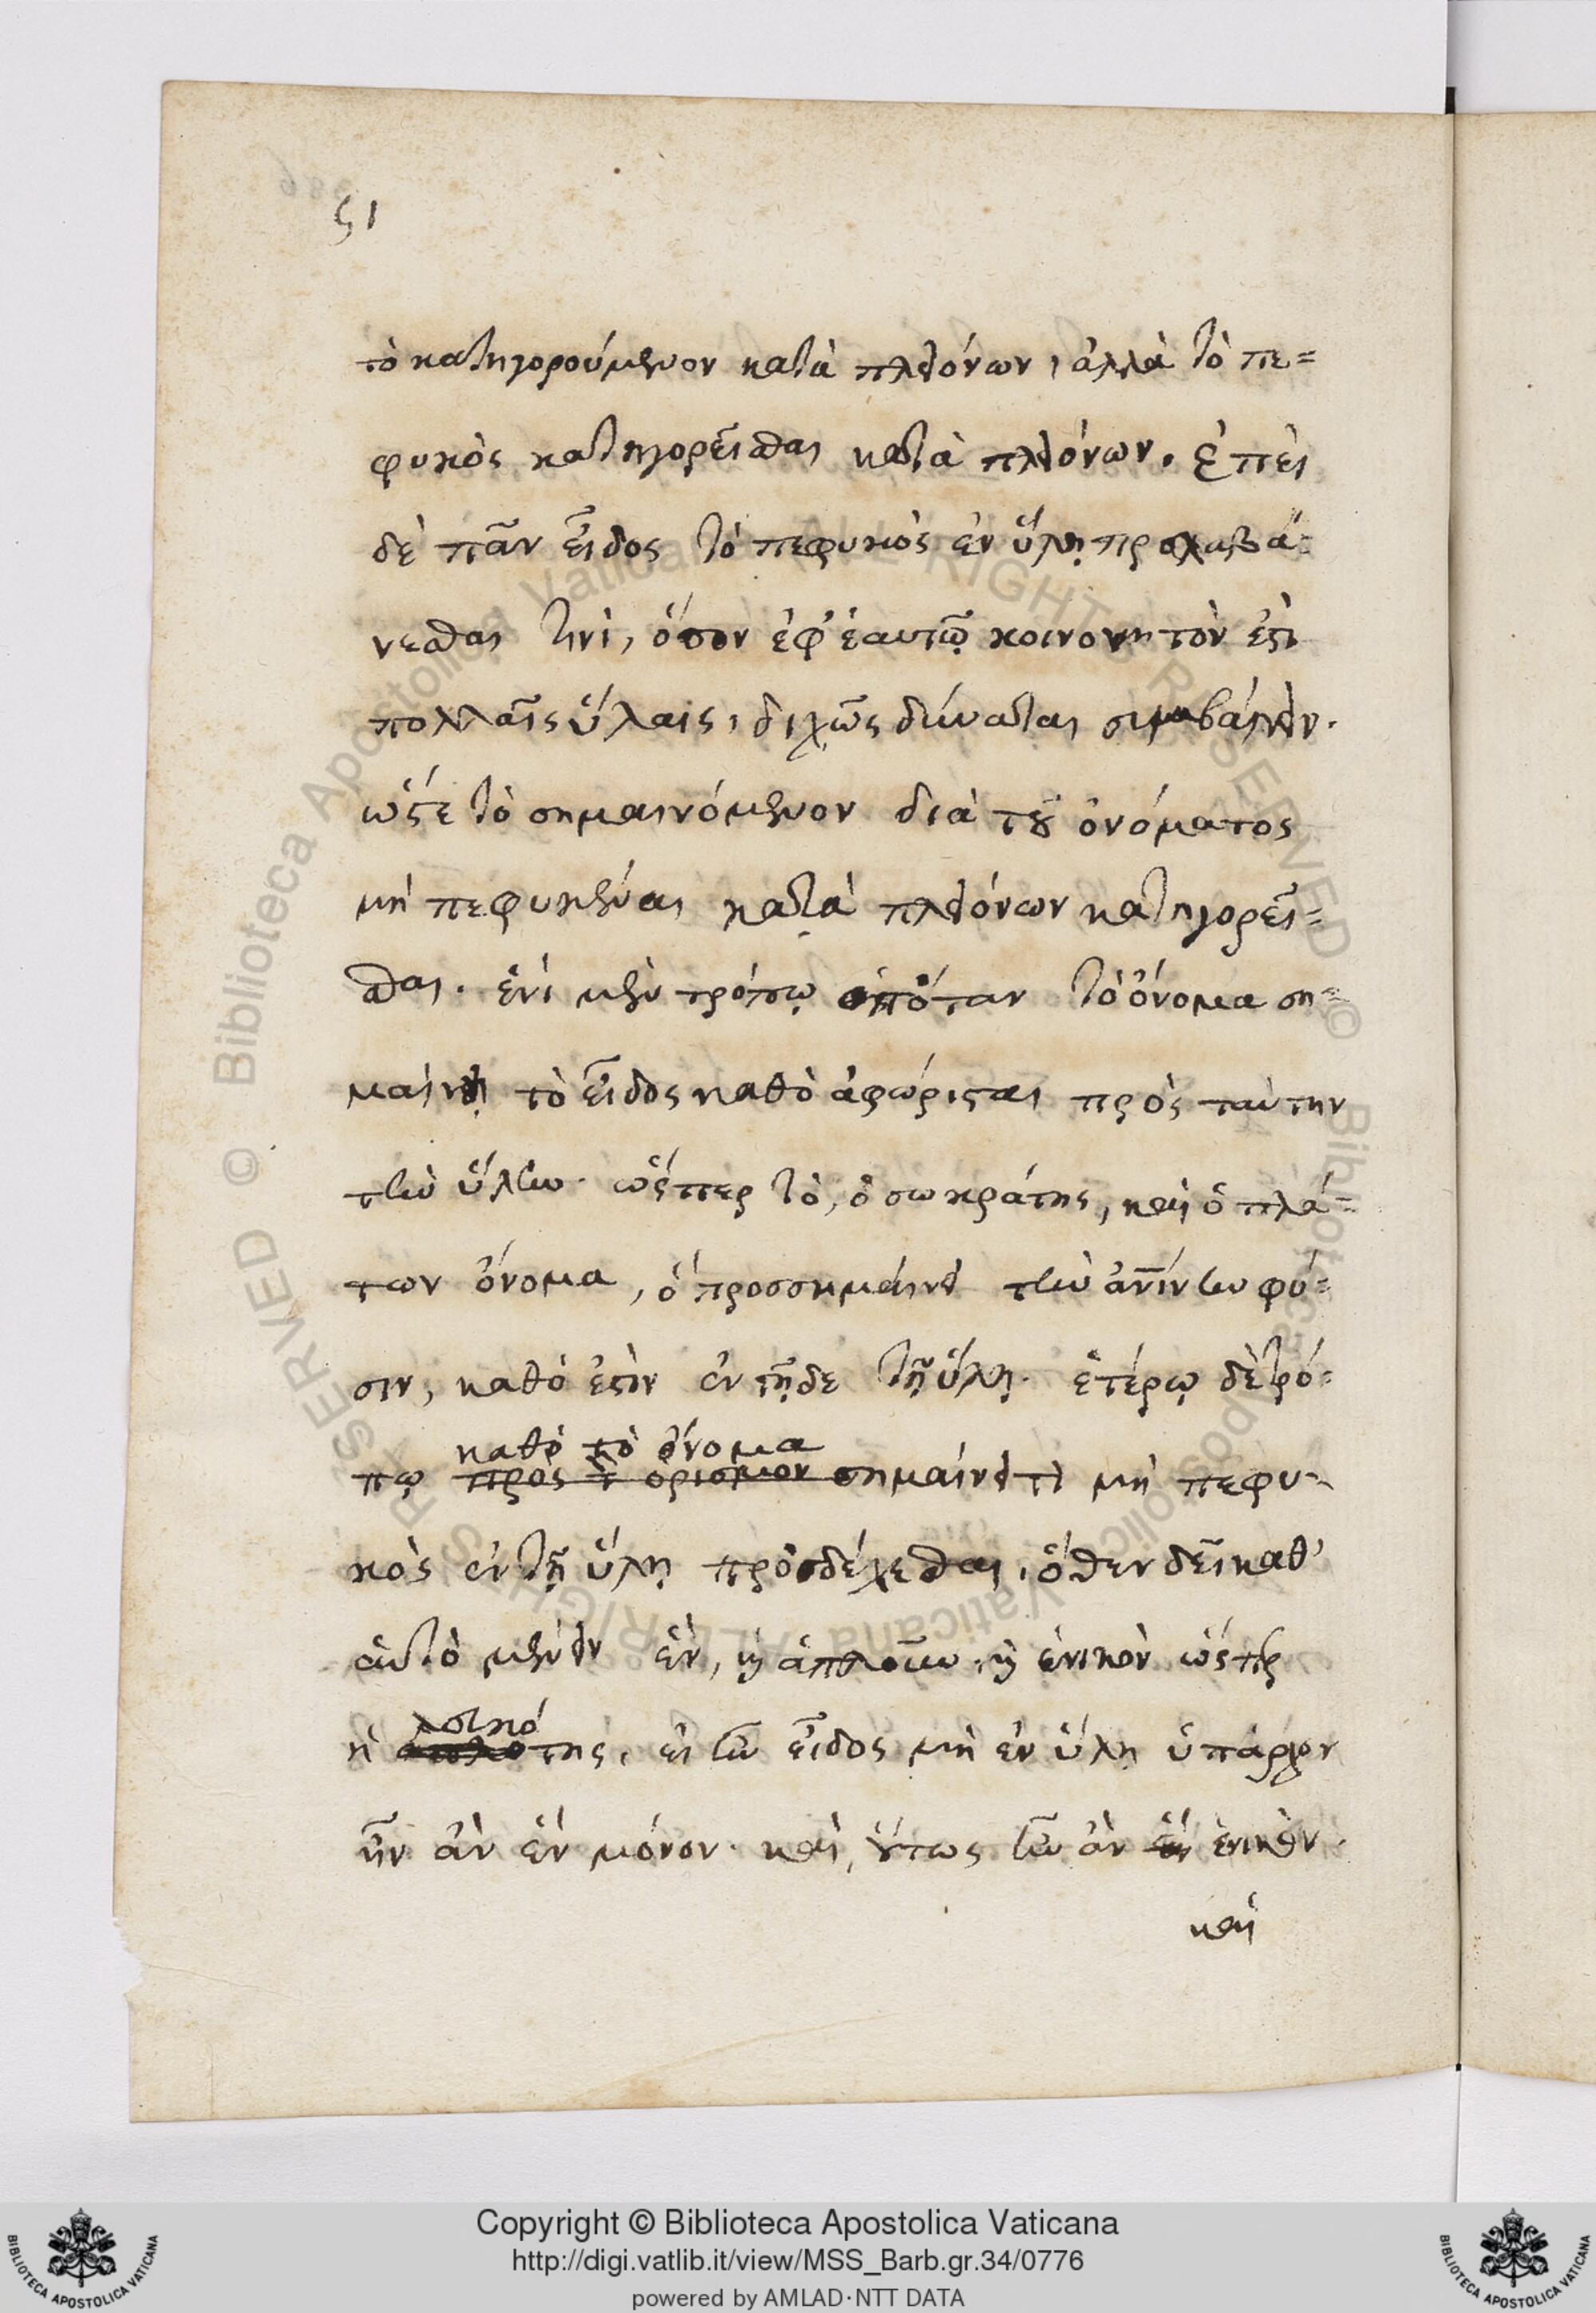 ςι
τὸ κατηγορούμενον κατὰ πλειόνων, ἀλλὰ τὸ πε=
φυκὸς κατηγορεῖσθαι κατὰ πλειόνων. ἐπεὶ
δὲ πᾶν εἶδος τὸ πεφυκὸς ἐν ὕλῃ προσλαμβά=
νεσθαι τινὶ, ὅσον ἐφ' ἑαυτῷ κοινονητὸν ἐστὶ
πολλαῖς ὕλαις, διχῶς δύναται συμβαίνειν.
ὥστε τὸ σημαινόμενον διὰ τοῦ ὀνόματος
μὴ πεφυκέναι κατὰ πλειόνων κατηγορεῖ=
σθαι. ἑνὶ μὲν τρόπῳ ὁπόταν τὸ ὄνομα ση=
μαίνῃ τὸ εἶδος καθὸ ἀφώρισται πρὸς ταύτην
τὴν ὕλην. ὥσπερ τὸ, ὁ σωκράτης, καὶ ὁ πλά=
των ὄνομα, ὃ προσσημαίνει τὴν ἀνίνην φύ=
σιν, καθὸ ἐστὶν ἐν τῇδε τῇ ὕλῃ. ἑτέρῳ δὲ τρό=
καθὸ τὸ ὄνομα
πῳ πρὸς τ ὁρισμον σημαίνει τὶ μὴ πεφυ-
κὸς ἐν τῇ ὕλῃ προσδέχεσθαι, ὅθεν δεῖ καθ'
αὑτὸ μένειν ἓν, καὶ ἁπλοῦν, καὶ ἑνικὸν ὥσπερ
λευκό
ἡ της, εἰ ἦν εἶδος μὴ ἐν ὕλῃ ὑπάρχον
ἦν ἂν ἓν μόνον. καὶ, οὕτως ἦν ἂν ἑνικὸν.
καὶ
Copyright © Biblioteca Apostolica Vaticana
http://digi.vatlib.it/view/MSS_Barb.gr.34/0776
powered by AMLAD·NTT DATA
BIBLIOTECA APOSTOLICA VATICANA
BIBLIOTECA APOSTOLICA VATICANA
© Biblioteca Apostolica Vaticana ALL RIGHTS RESERVED
© Biblioteca Apostolica Vaticana ALL RIGHTS RESERVED